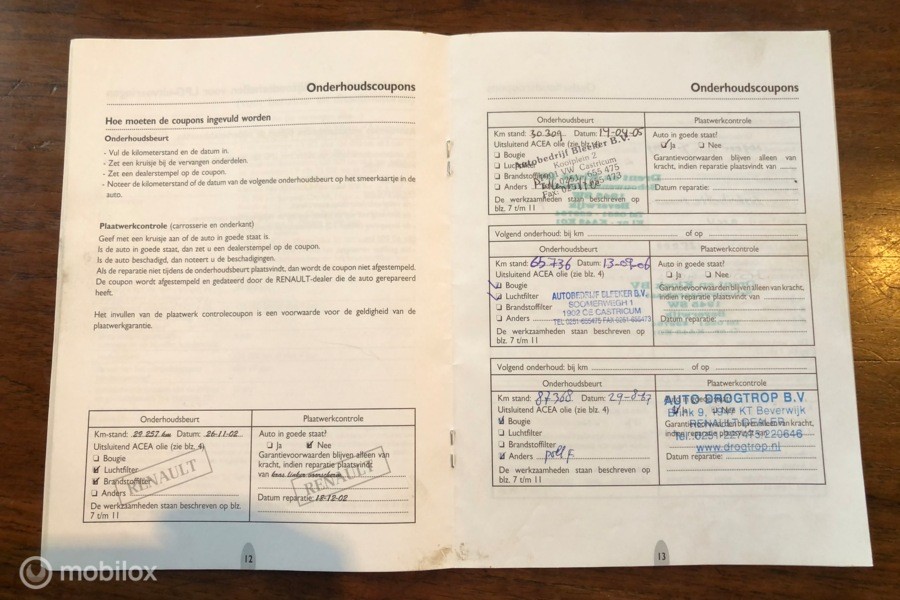 Onderhoudscoupons
Hoe moeten de coupons ingevuld worden
Onderhoudsbeurt
- Vul de kilometerstand en de datum in.
- Zet een kruisje bij de vervangen onderdelen.
- Zet een dealerstempel op de coupon.
- Noteer de kilometerstand of de datum van de volgende onderhoudsbeurt op het smeerkaartje in de
auto.
Plaatwerkcontrole (carrosserie en onderkant)
Geef met een kruisje aan of de auto in goede staat is.
Is de auto in goede staat, dan zet u een dealerstempel op de coupon.
Is de auto beschadigd, dan noteert u de beschadigingen.
Als de reparatie niet tijdens de onderhoudsbeurt plaatsvindt, dan wordt de coupon niet afgestempeld.
De coupon wordt afgestempeld en gedateerd door de RENAULT-dealer die de auto gerepareerd
heeft.
Het invullen van de plaatwerk controlecoupon is een voorwaarde voor de geldigheid van de
plaatwerkgarantie.
Onderhoudsbeurt
Km-stand: 29.257 km Datum: 26-11-02
Uitsluitend ACEA olie (zie blz. 4)
Bougie
Luchtfilter
Brandstoffilter
Anders
De werkzaamheden staan beschreven op blz.
7 t/m 11
RENAULT
Plaatwerkcontrole
Auto in goede staat!
Ja Nee
Garantievoorwaarden blijven alleen van
kracht, indien reparatie plaatsvindt
van
Datum reparatie: 18-12-02
RENAULT
12
Onderhoudscoupons
Onderhoudsbeurt
Km stand: 30.309 Datum: 14-04-05
Uitsluitend ACEA olie
Bougie
Luchtfilter
Brandstoffilter
Anders
De werkzaamheden staan beschreven op
blz. 7 t/m 11
Autobedrijf Bleeker B.V.
Kooiplein 2
Plaatwerkcontrole
Auto in goede staat!
Ja Nee
Garantievoorwaarden blijven alleen van
kracht, indien reparatie plaatsvindt van
Datum reparatie:
Volgend onderhoud: bij km of op
Onderhoudsbeurt
Km stand: 65736 Datum: 13-09-06
Uitsluitend ACEA olie (zie blz. 4)
Bougie
Luchtfilter
Brandstoffilter
Anders
De werkzaamheden staan beschreven op
blz. 7 t/m 11
AUTOBEDRIJF BLEEKER B.V.
SOOMERWEGH 1
1902 CE CASTRICUM
TEL 0251-655475 FAX 0251-655473
Plaatwerkcontrole
Auto in goede staat!
Ja Nee
Garantievoorwaarden blijven alleen van kracht,
indien reparatie plaatsvindt van
Datum reparatie:
Volgend onderhoud: bij km of op
Onderhoudsbeurt
Km stand: 87368 Datum: 29-8-07
Uitsluitend ACEA olie (zie blz. 4)
Bougie
Luchtfilter
Brandstoffilter
Anders pollF
De werkzaamheden staan beschreven op
blz. 7 t/m 11
Plaatwerkcontrole
Auto in goede staat!
Ja Nee
Garantievoorwaarden blijven alleen van kracht,
indien reparatie plaatsvindt van
Datum reparatie:
AUTO DROGTROP B.V.
Brink 9, 1947 KT Beverwijk
RENAULT DEALER
Tel. 0251-227475/220646
www.drogtrop.nl
13
mobilox